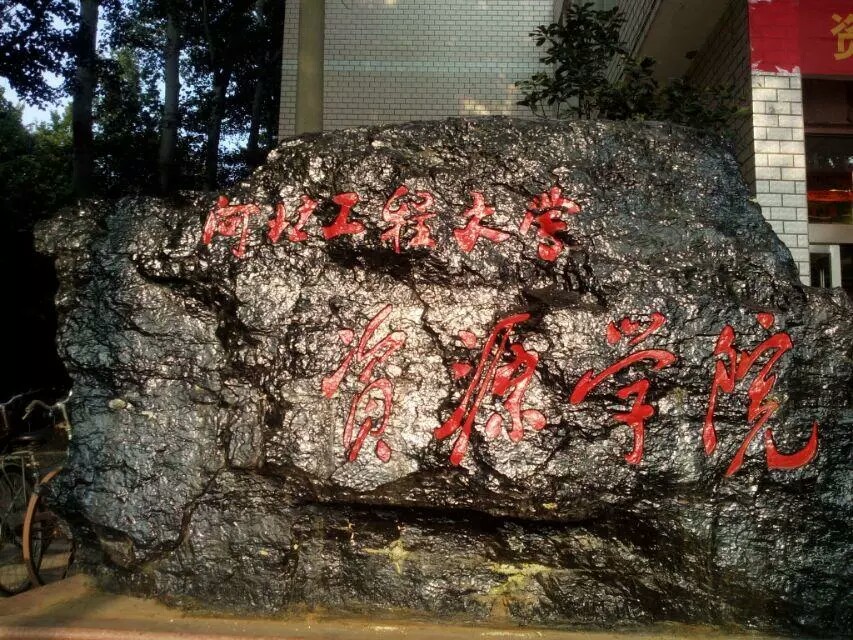 河北工程大学
资源学院
资